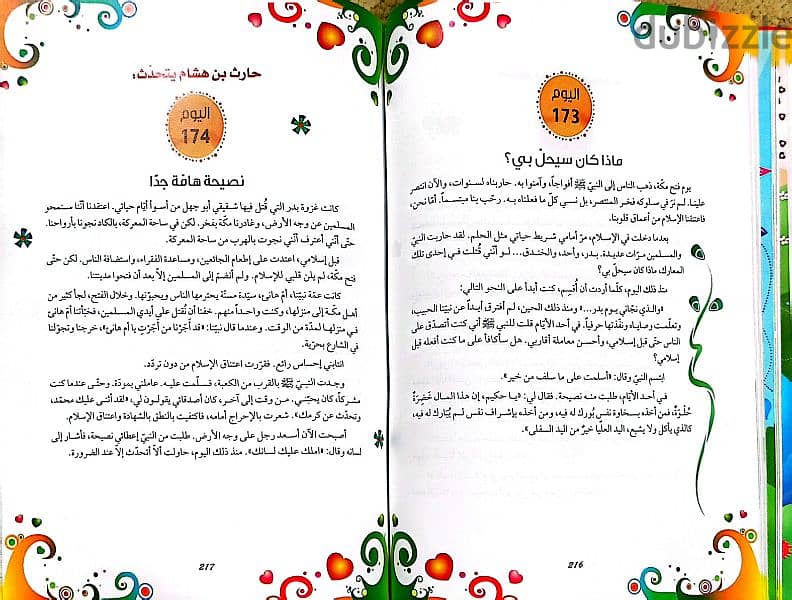 dubizzle
اليوم
173
ماذا كان سيحلّ بي؟
يوم فتح مكّة، ذهب الناس إلى النبيّ ﷺ أفواجاً، وآمنوا به. حاربناه لسنوات، والآن انتصر
علينا. لم نرَ في سلوكه فخر المنتصر، بل نسي كلّ ما فعلناه به. رحّب بنا مبتسماً. أمّا نحن،
فاعتنقنا الإسلام من أعماق قلوبنا.
بعدما دخلت في الإسلام، مرّ أمامي شريط حياتي مثل الحلم. لقد حاربت النبي
والمسلمين مرّات عديدة. بدر، وأحد، والخندق... لو أنّني قُتلت في إحدى تلك
المعارك، ماذا كان سيحلّ بي؟
منذ ذلك اليوم، كلّما أردت أن أُقسِم، كنت أبدأ على النحو التالي:
«والذي نجّاني يوم بدر...» ومنذ ذلك الحين، لم أفترق أبداً عن نبيّنا الحبيب،
وتعلّمت وصاياه ونفّذتها حرفياً. في أحد الأيّام قلت للنبي ﷺ أني كنت أتصدّق على
الناس حتّى قبل إسلامي، وأحسن معاملة أقاربي. هل سأكافأ على ما كنت أفعله قبل
إسلامي؟
ابتسم النبيّ وقال: «أسلمت على ما سلف من خير».
في أحد الأيّام، طلبت منه نصيحة. فقال لي: «يا حكيم، إن هذا المال خَضِرَةٌ
حُلْوَةٌ، فمن أخذه بسخاوة نفس بُورك له فيه، ومن أخذه بإشراف نفس لم يُبَارك له فيه،
كالذي يأكل ولا يشبع، اليد العليا خيرٌ من اليد السفلى».
216
حارث بن هشام يتحدّث:
اليوم
174
نصيحة هامّة جدّا
كانت غزوة بدر التي قُتل فيها شقيقي أبو جهل من أسوأ أيّام حياتي. اعتقدنا أنّنا سنمحو
المسلمين عن وجه الأرض، وغادرنا مكّة بفخر. لكن في ساحة المعركة، بالكاد نجونا بأرواحنا.
حتّى أنّني أعترف أنّني نجوت بالهرب من ساحة المعركة.
قبل إسلامي، اعتدت على إطعام الجائعين، ومساعدة الفقراء، واستضافة الناس. لكن حتّى
فتح مكّة، لم يلن قلبي للإسلام. ولم أنضمّ إلى المسلمين إلاّ بعد أن فتحوا مدينتنا.
كانت عمّة نبيّنا، أمّ هانئ، سيّدة مسنّة يحترمها الناس ويحبّونها. وخلال الفتح، لجأ كثير من
أهل مكّة إلى منزلها، وكنت واحداً منهم. خفنا أن نُقتل على أيدي المسلمين، فخبّأتنا أمّ هانئ
في منزلها لمدّة من الوقت. وعندما قال نبيّنا: «قد أَجَرْنا من أَجَرْتِ يا أم هانئ»، خرجنا وتجوّلنا
في الشارع بحرّية.
انتابني إحساس رائع. فقرّرت اعتناق الإسلام من دون تردّد.
وجدت النبيّ ﷺ بالقرب من الكعبة، فسلّمت عليه. عاملني بمودّة. وحتّى عندما كنت
مشركاً، كان يحبّني. من وقت إلى آخر، كان أصدقائي يقولون لي: «لقد أثنى عليك محمّد،
وتحدّث عن كرمك». شعرت بالإحراج أمامه، فاكتفيت بالنطق بالشهادة واعتناق الإسلام.
أصبحت الآن أسعد رجل على وجه الأرض. طلبت من النبيّ إعطائي نصيحة، فأشار إلى
لسانه وقال: «املك عليك لسانك». منذ ذلك اليوم، حاولت ألاّ أتحدّث إلاّ عند الضرورة.
217